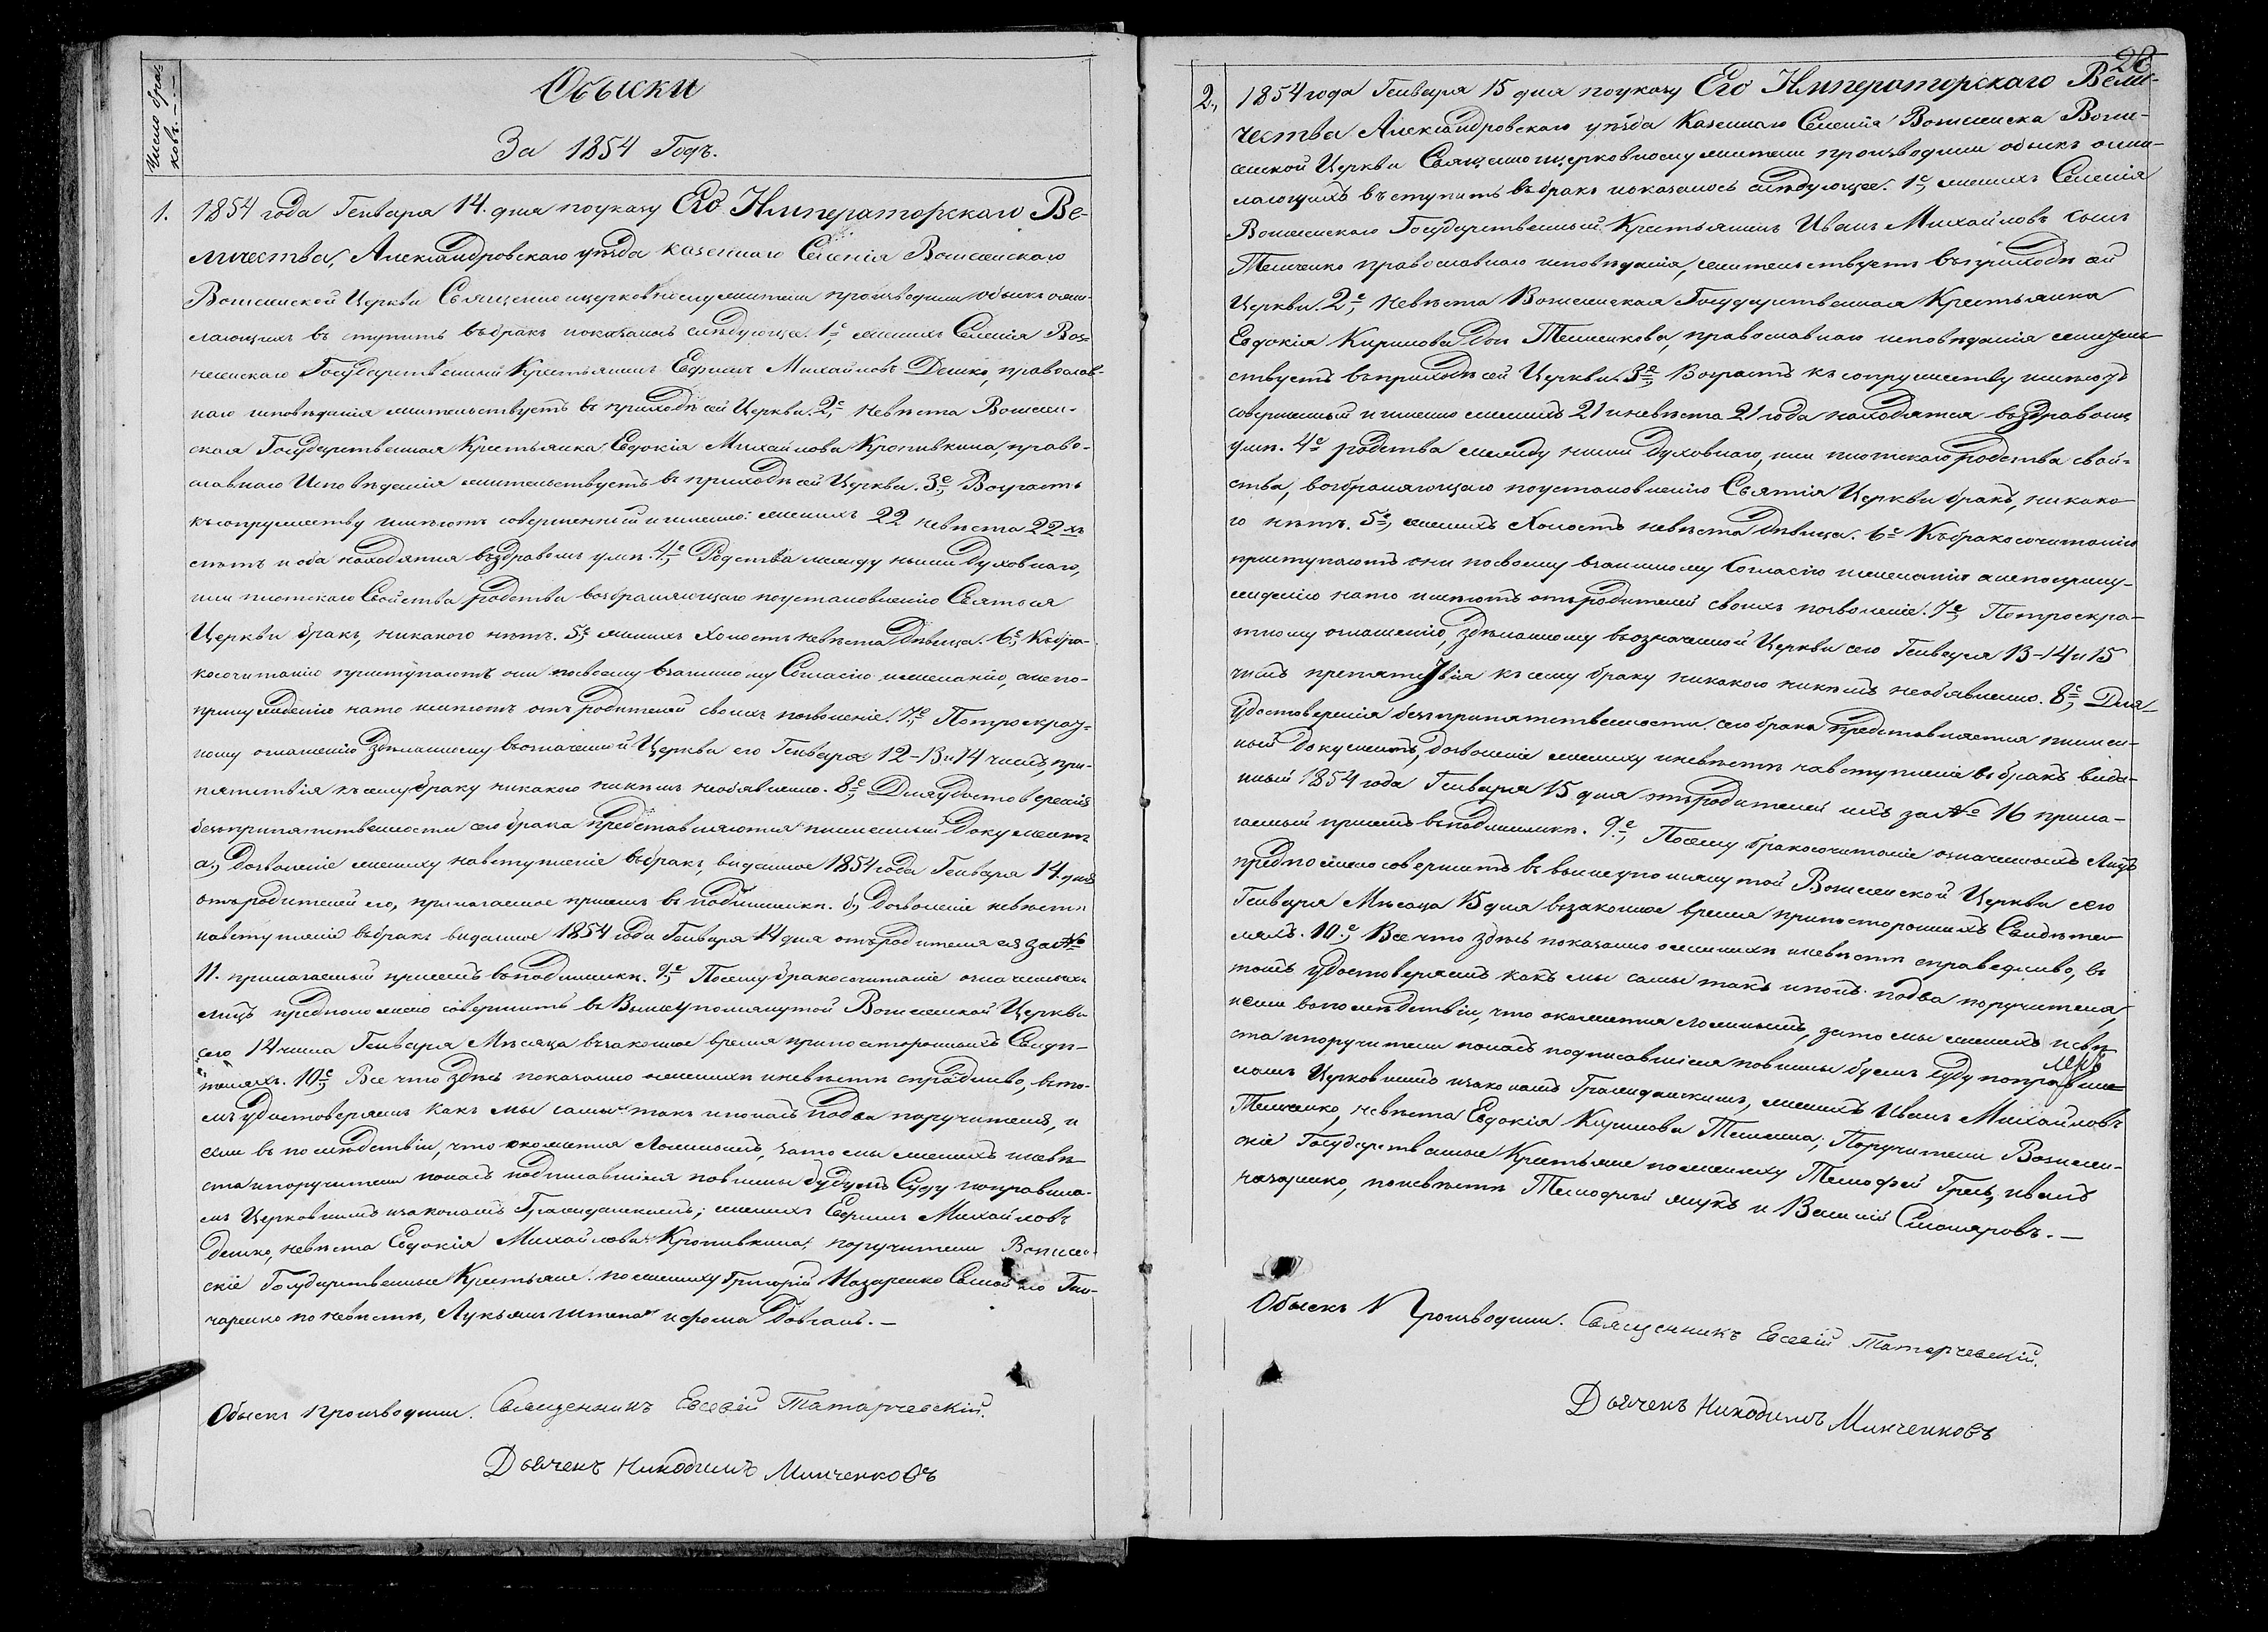 Число бра-
ковъ.
Обыски
За 1854 Годъ.
1. 1854 года Генваря 14. дня поуказу Его Императорскаго Ве-
личества, Александровскаго уѣзда казеннаго Селенія Вознесенскаго
Вознесенской Церкви Священно ицерковнослужители производили обыкъ ожи-
лающихъ въ ступить вбракъ показалось слѣдующее. 1е женихъ Селенія Воз-
несенскаго Государственный Крестьянинъ Ефимъ Михайловъ Дешко, православ-
наго исповѣданія жительствуетъ в приходѣ сей Церкви. 2е, невѣста Вознесен-
ская Государственная Крестьянка Евдокія Михайлова Кропивкина, право-
славнаго Исповѣданія жительствуетъ в приходѣ сей Церкви. 3е, Возрастъ
къ супружеству имѣютъ совершенный и именно: женихъ 22 невѣста 22хъ
лѣтъ и оба находятся вздравомъ умѣ. 4е, Родства между ними духовнаго,
или плотскаго Свойства родства возбраняющаго поустановленію Святыя
Церкви бракъ, никакого нѣтъ. 5е, женихъ Холостъ невѣста дѣвица. 6е, Къ бра-
косочитанію приступаютъ они посвоему взаимному Согласію ижеланію, анепо-
принужденію нато имѣютъ отъ родителей своихъ позволеніе. 7е, Потроекрат-
ному оглашенію здѣланному возначенной Церкви сего Генваря 12-13 и 14 числъ, при-
пятствія ксему браку никакого никѣмъ необявленно. 8е, Дляудостоверенія
безъприпятственности сего брака представляются писменный документъ
а., Дозволеніе жениху навступленіе вбракъ, виданное 1854 года Генваря 14. дня
отъродителей его, прилагаемое приемъ в подлинникѣ. б., Дозволеніе невѣстѣ
навступленіе вбракъ виданное 1854 года Генваря 14 дня отъродителя ея за №
11. прилагаемый приемъ вподлинникѣ. 9е, Посему бракосочитаніе означенныхъ
лицъ предположено совершить въ Вышеупомянутой Вознесенской Церкви
сего 14 числа Генваря Мѣсяца взаконное время припостороннихъ Свидѣ-
теляхъ. 10е, Все что здѣсь показанно оженихѣ иневѣстѣ справѣдливо, вто-
мъ удостоверяемъ какъ мы самы такъ и понасъ подва поручителя, и
если в послѣдствіи, что окажется Ложнымъ, зато мы женихъ иневѣ-
ста ипоручители понасъ подписавшіеся повинны будемъ Суду поправила-
мъ Церковнымъ изаконамъ Гражданскимъ; женихъ Ефимъ Михайловъ
Дешко, невѣста Евдокія Михайлова Кропивкина, поручители Вознесен-
скіе Государственные Крестьяне. пожениху Григорій Назаренко Самойло Гон-
чаренко по невѣстѣ, Лукьянъ и Фрома Довгаль.-
Обыскъ производили. Священникъ Евсевій Татарчевскій.
Дьячекъ Никодимъ Минченковъ
20
2., 1854 года Генваря 15 дня поуказу Его Императорскаго Вели-
чества Александровскаго уѣзда Казеннаго Селенія Вознесенска Возне-
сенской Церкви Священно ицерковнослужители производили обыкъ ожи-
лающихъ въступить въбракъ показалось слѣдующее. 1е, женихъ Селенія
Вознесенскаго Государственный Крестьянинъ Иванъ Михайловъ сынъ
Темченко православнаго исповѣданія, жительствуетъ въприходѣ сей
Церкви. 2е, Невѣста Вознесенская Государственная Крестьянка
Евдокія Кирилова Дон Тесленкова, православнаго исповѣданія жител-
ствуетъ въприходѣ сей Церкви. 3е, Возрастъ къ супружеству имѣютъ
совершенный и именно женихъ 21 иневѣста 21 года находятся воздравомъ
умѣ. 4е родства между ними Духовнаго, или плотскаго родства свой-
ства, возбраняющаго поустановленію Святія Церкви бракъ, никако-
го нѣтъ. 5е, женихъ Холостъ невѣста дѣвица. 6е Къбракосочитанію
приступаютъ они посвоему взаимному Согласію ижеланію анепоприну-
жденію нато имѣютъ отъродителей своихъ позволеніе. 7е, Потроекра-
тному оглашенію, здѣланному возначенной Церкви сего Генваря 13-14 и 15
числъ препятствія ксему браку никакого никѣмъ необявленно. 8е, Для-
удостоверенія безъприпятственности сего брака представляется писмен-
ный документъ, дозволеніе жениху иневѣстѣ навступленіе вбракъ вида-
нный 1854 года Генваря 15 дня отъродителей ихъ за № 16 прила-
гаемый приемъ вподлинникѣ. 9е, Посему бракосочитаніе означенныхъ Лицъ
предположено совершить в вышеупомянутой Вознесенской Церкви сего
Генваря Мѣсяца 15 дня взаконное время припостороннихъ Свидѣте-
ляхъ. 10е, Все что здѣсь показанно оженихѣ иневѣстѣ справедливо, в
томъ удостоверяемъ какъ мы самы такъ ипонасъ подва поручителя,
иесли вопослѣдствіи, что окажется ложнымъ, зато мы женихъ иневѣ-
ста ипоручители понасъ подписавшіеся повинны будемъ Суду поправи-
ламъ Церковнымъ изаконамъ Гражданскимъ, женихъ Иванъ Михайловъ
Темченко, невѣста Евдокія Кирилова Тесленкова; Поручители Вознесен-
скіе Государственные Крестьяне пожениху Тимофей Грель, иванъ
назаренко, поневѣстѣ Тимофей жукъ и Василій Столяровъ.-
Обыскъ Производили. Священникъ Евсевій Татарчевскій.
Дьячекъ Никодимъ Минченковъ